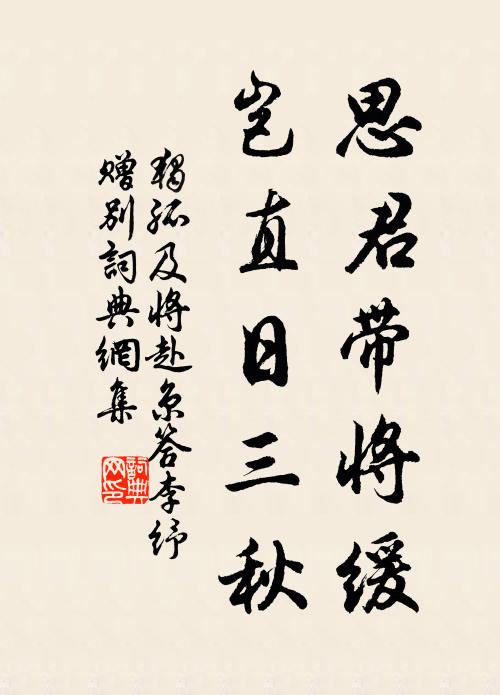 思君带将缓
岂直日三秋
独孤及将赴京答李纾
赠别词典网集
词典网印